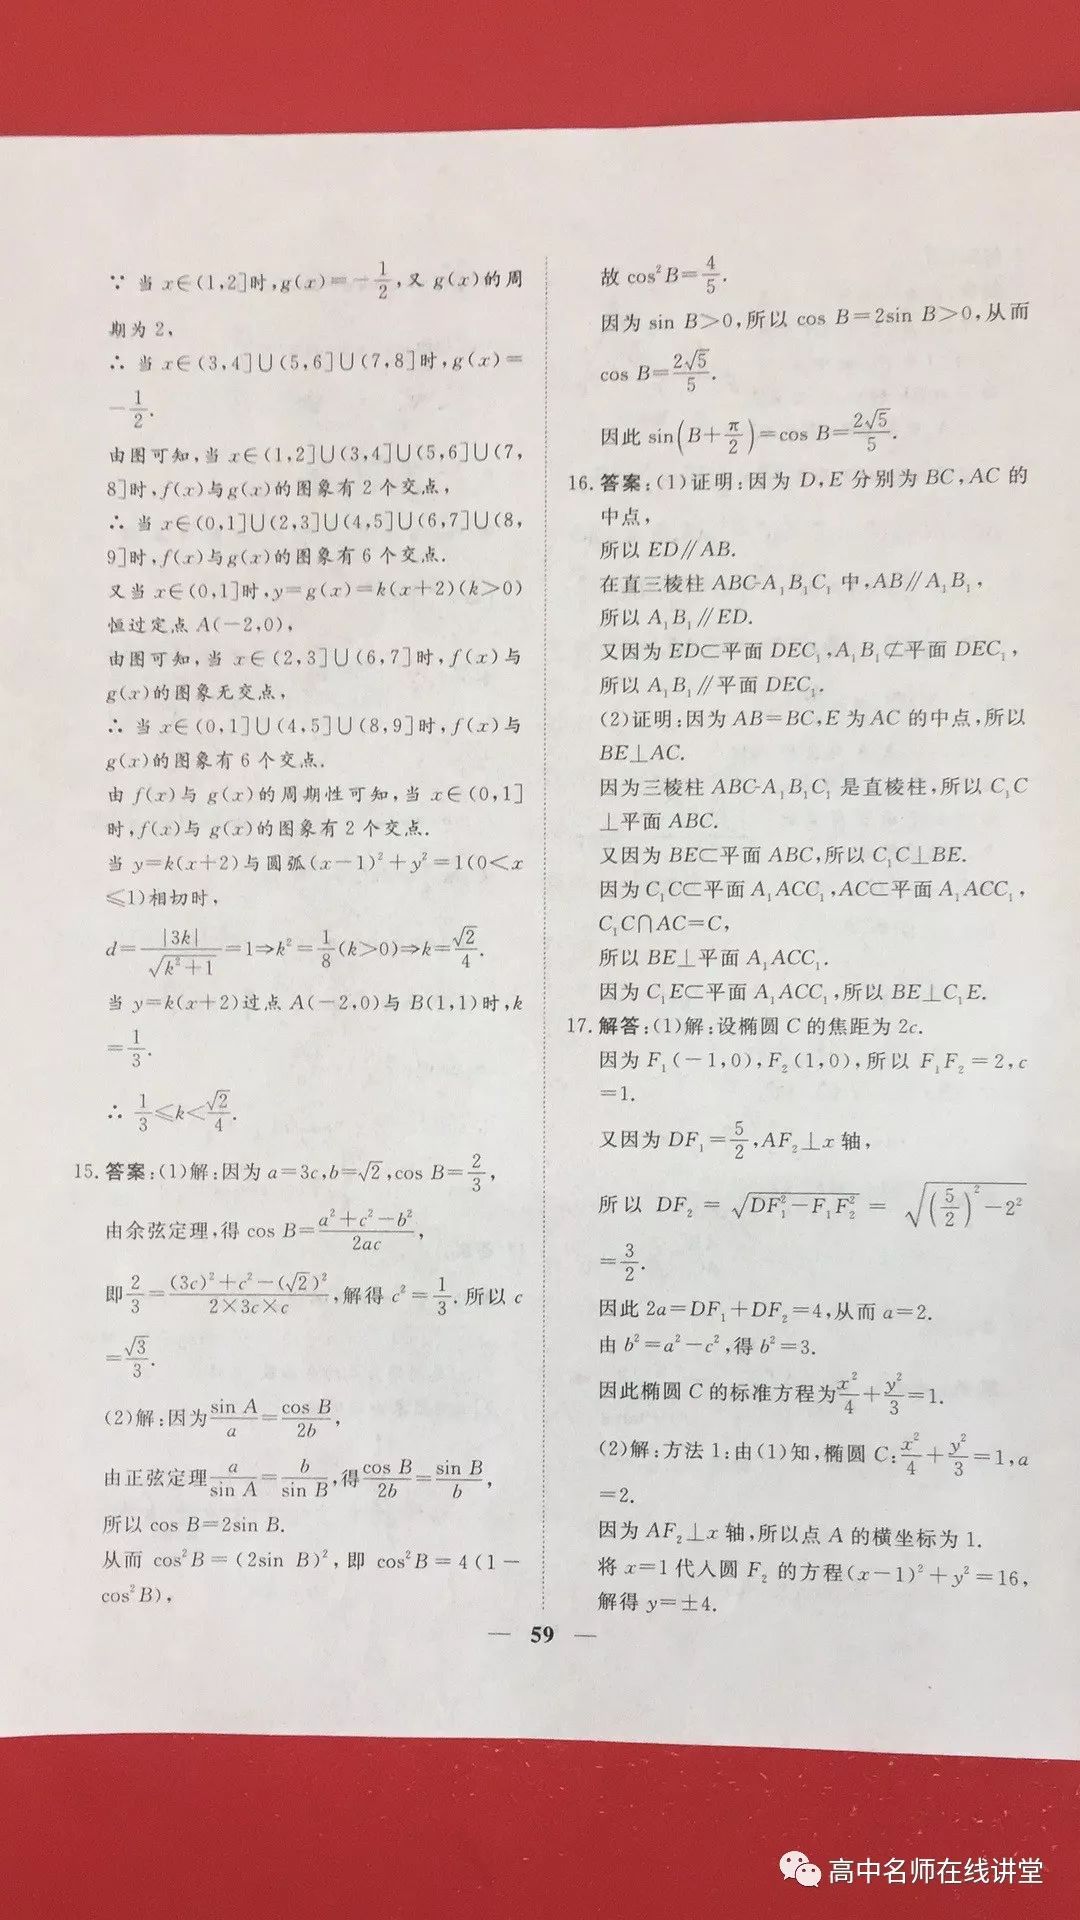 ∵ 当 x∈(1,2]时,g(x)=-1/2,又 g(x)的周
期为 2,
∴ 当 x∈(3,4]∪(5,6]∪(7,8]时,g(x)=
-1/2.
由图可知,当 x∈(1,2]∪(3,4]∪(5,6]∪(7,
8]时,f(x)与g(x)的图象有 2 个交点,
∴ 当 x∈(0,1]∪(2,3]∪(4,5]∪(6,7]∪(8,
9]时,f(x)与g(x)的图象有 6 个交点.
又当 x∈(0,1]时,y=g(x)=k(x+2)(k>0)
恒过定点 A(-2,0),
由图可知,当 x∈(2,3]∪(6,7]时,f(x)与
g(x)的图象无交点,
∴ 当 x∈(0,1]∪(4,5]∪(8,9]时,f(x)与
g(x)的图象有 6 个交点.
由 f(x)与 g(x)的周期性可知,当 x∈(0,1]
时,f(x)与 g(x)的图象有 2 个交点.
当 y=k(x+2)与圆弧(x-1)²+y²=1(0<x
≤1)相切时,
d=|3k|/√(k²+1)=1⇒k²=1/8(k>0)⇒k=√2/4.
当 y=k(x+2)过点 A(-2,0)与 B(1,1)时,k
=1/3.
∴ 1/3≤k<√2/4.
15.答案:(1)解:因为 a=3c,b=√2,cos B=2/3,
由余弦定理,得 cos B=(a²+c²-b²)/2ac,
即2/3=((3c)²+c²-(√2)²)/(2×3c×c),解得 c²=1/3.所以 c
=√3/3.
(2)解:因为sin A/a=cos B/2b,
由正弦定理a/sin A=b/sin B,得cos B/2b=sin B/b,
所以 cos B=2sin B.
从而 cos²B=(2sin B)²,即 cos²B=4(1-
cos²B),
故 cos²B=4/5.
因为 sin B>0,所以 cos B=2sin B>0,从而
cos B=2√5/5.
因此 sin(B+π/2)=cos B=2√5/5.
16.答案:(1)证明:因为 D,E 分别为 BC,AC 的
中点,
所以 ED∥AB.
在直三棱柱 ABC-A₁B₁C₁ 中,AB∥A₁B₁,
所以 A₁B₁∥ED.
又因为 ED⊂平面 DEC₁,A₁B₁⊄平面 DEC₁,
所以 A₁B₁∥平面 DEC₁.
(2)证明:因为 AB=BC,E 为 AC 的中点,所以
BE⊥AC.
因为三棱柱 ABC-A₁B₁C₁ 是直棱柱,所以 C₁C
⊥平面 ABC.
又因为 BE⊂平面 ABC,所以 C₁C⊥BE.
因为 C₁C⊂平面 A₁ACC₁,AC⊂平面 A₁ACC₁,
C₁C∩AC=C,
所以 BE⊥平面 A₁ACC₁.
因为 C₁E⊂平面 A₁ACC₁,所以 BE⊥C₁E.
17.解答:(1)解:设椭圆 C 的焦距为 2c.
因为 F₁(-1,0),F₂(1,0),所以 F₁F₂=2,c
=1.
又因为 DF₁=5/2,AF₂⊥x 轴,
所以 DF₂=√(DF₁²-F₁F₂²)=√((5/2)²-2²)
=3/2.
因此 2a=DF₁+DF₂=4,从而 a=2.
由 b²=a²-c²,得 b²=3.
因此椭圆 C 的标准方程为x²/4+y²/3=1.
(2)解:方法 1:由(1)知,椭圆 C:x²/4+y²/3=1,a
=2.
因为 AF₂⊥x 轴,所以点 A 的横坐标为 1.
将 x=1 代人圆 F₂ 的方程(x-1)²+y²=16,
解得 y=±4.
— 59 —
高中名师在线讲堂